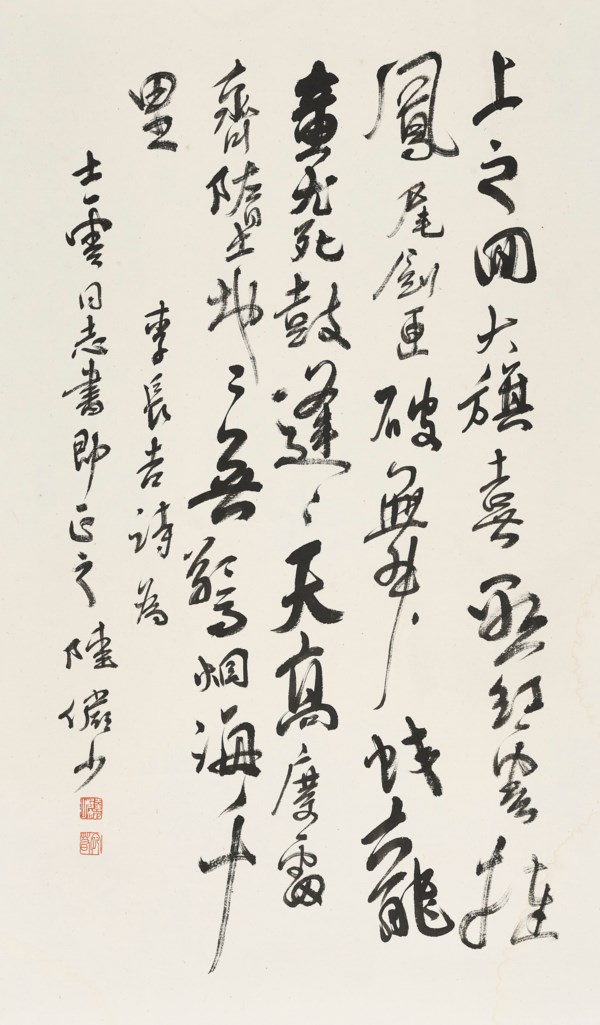 上之回大旗喜懸紅雲撻
鳳尾劍匣破舞蛟龍
蚩尤死鼓逢〻天高慶雷
齊墮地〻無驚烟海千
里 李長吉詩為
士雲同志書即正之 陸儼少